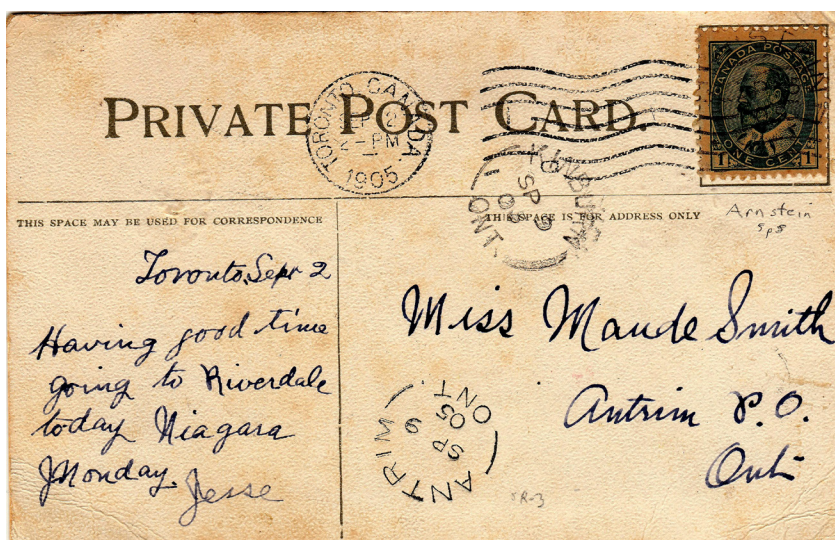 PRIVATE POST CARD.
TORONTO, CANADA
2 - PM
1905
CANADA POSTAGE
1 ONE CENT 1
KINBURN
SP
ONT
Arnstein
THIS SPACE MAY BE USED FOR CORRESPONDENCE
THIS SPACE IS FOR ADDRESS ONLY
Toronto, Sept 2
Having good time
going to Riverdale
today Niagara
Monday.
Jesse
Miss Maude Smith
Antrim P.O.
Ont
ANTRIM
SP 9
05
ONT.